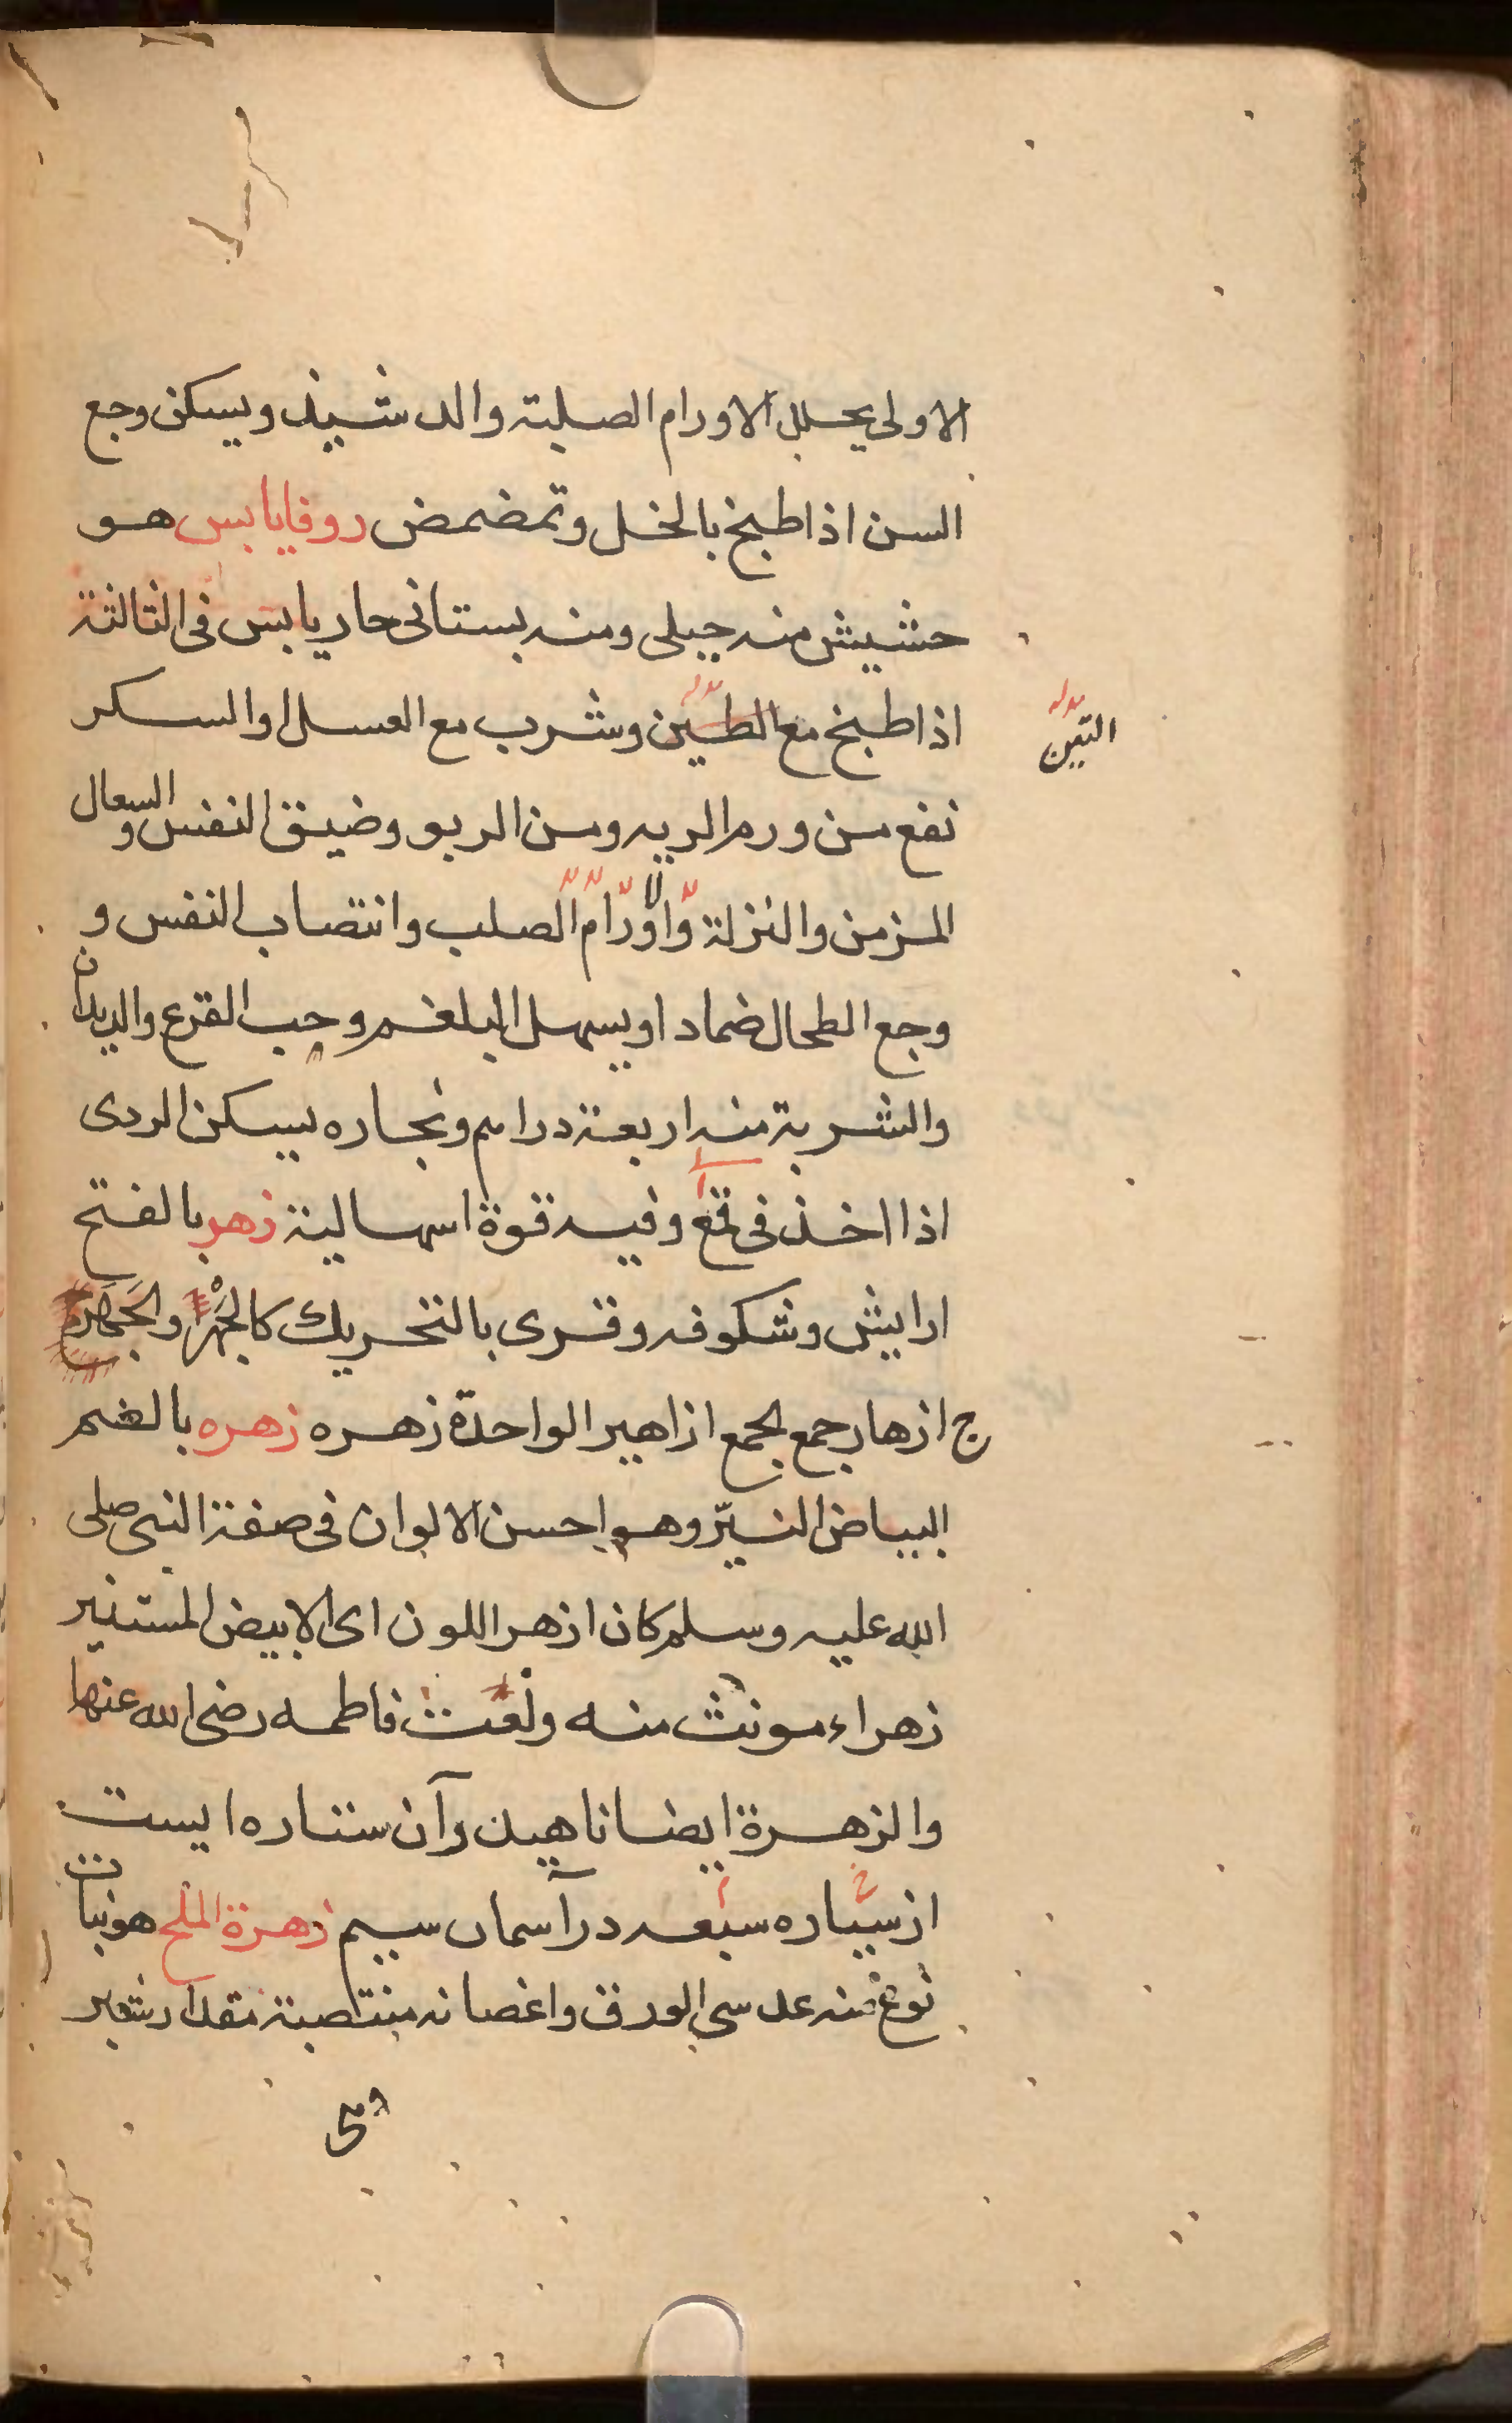 الاولى يحلل الاورام الصلبة والدشبيذ ويسكن وجع
السن اذا طبخ بالخل وتمضمض روفايابس هو
حشيش منه جبلى ومنه بستانى حار يابس فى الثالثة
اذا طبخ مع الطين وشرب مع العسل او السكر
التين
نفع من ورم الريه ومن الربو وضيق النفس والسعال
المزمن والنزلة والاورام الصلب وانتصاب النفس و
وجع الطحال ضمادا ويسهل البلغم وحب القرع والديدان
والشربة منه اربعة دراهم وبخاره يسكن الردى
اذا اخذ فى قمع وفيه قوة اسهالية زهر بالفتح
ارايش وشكوفه وقرى بالتحريك كالجهر والجهرة
ج ازهار جمع لجمع ازاهير الواحدة زهره زهره بالضم
البياض النيّر وهو احسن الالوان فى صفة النبى صلى
الله عليه وسلم كان ازهر اللون اى الابيض المستنير
زهراء مونث منه ولغت فاطمه رضى الله عنها
والزهرة ايضا ناهيد وآن ستاره ايست
از سيّاره سبعه در آسمان سيم زهرة الملح هو نبات
نوع منه عدسى الورق واغصانه منتصبة مقدار شبر